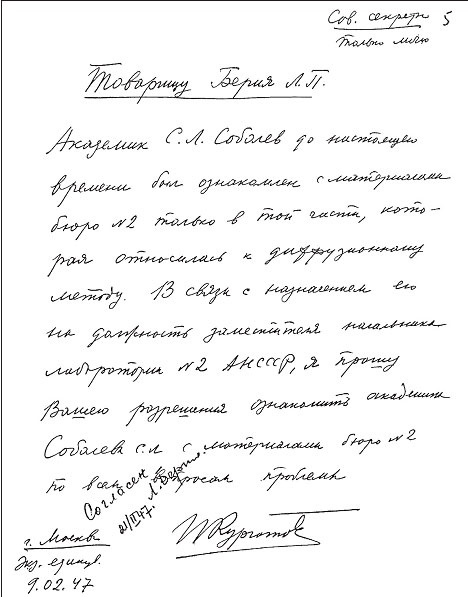 Сов. секретн 5
только лично
Товарищу Берия Л.П.
Академик С.Л. Соболев до настоящего
времени был ознакомлен с материалами
бюро №2 только в той части, кото-
рая относилась к диффузионному
методу. В связи с назначением его
на должность заместителя начальника
лаборатории №2 АНСССР, я прошу
Вашего разрешения ознакомить академика
Соболева С.Л с материалами бюро №2
по всем вопросам проблемы
Согласен
Л. Берия
21/II 47.
И Курчатов
г. Москва
Экз. единств.
9.02.47